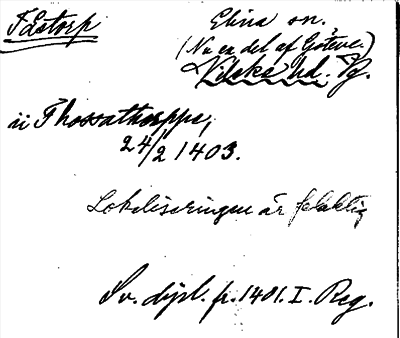 Tåstorp
Elins sn.
(Nu en del af Göteve.)
Vilske hd. Vg.
ii Thossathorppe,
24/2 1403.
Lokaliseringen är felaktig
Sv. dipl. fr. 1401. I. Reg.